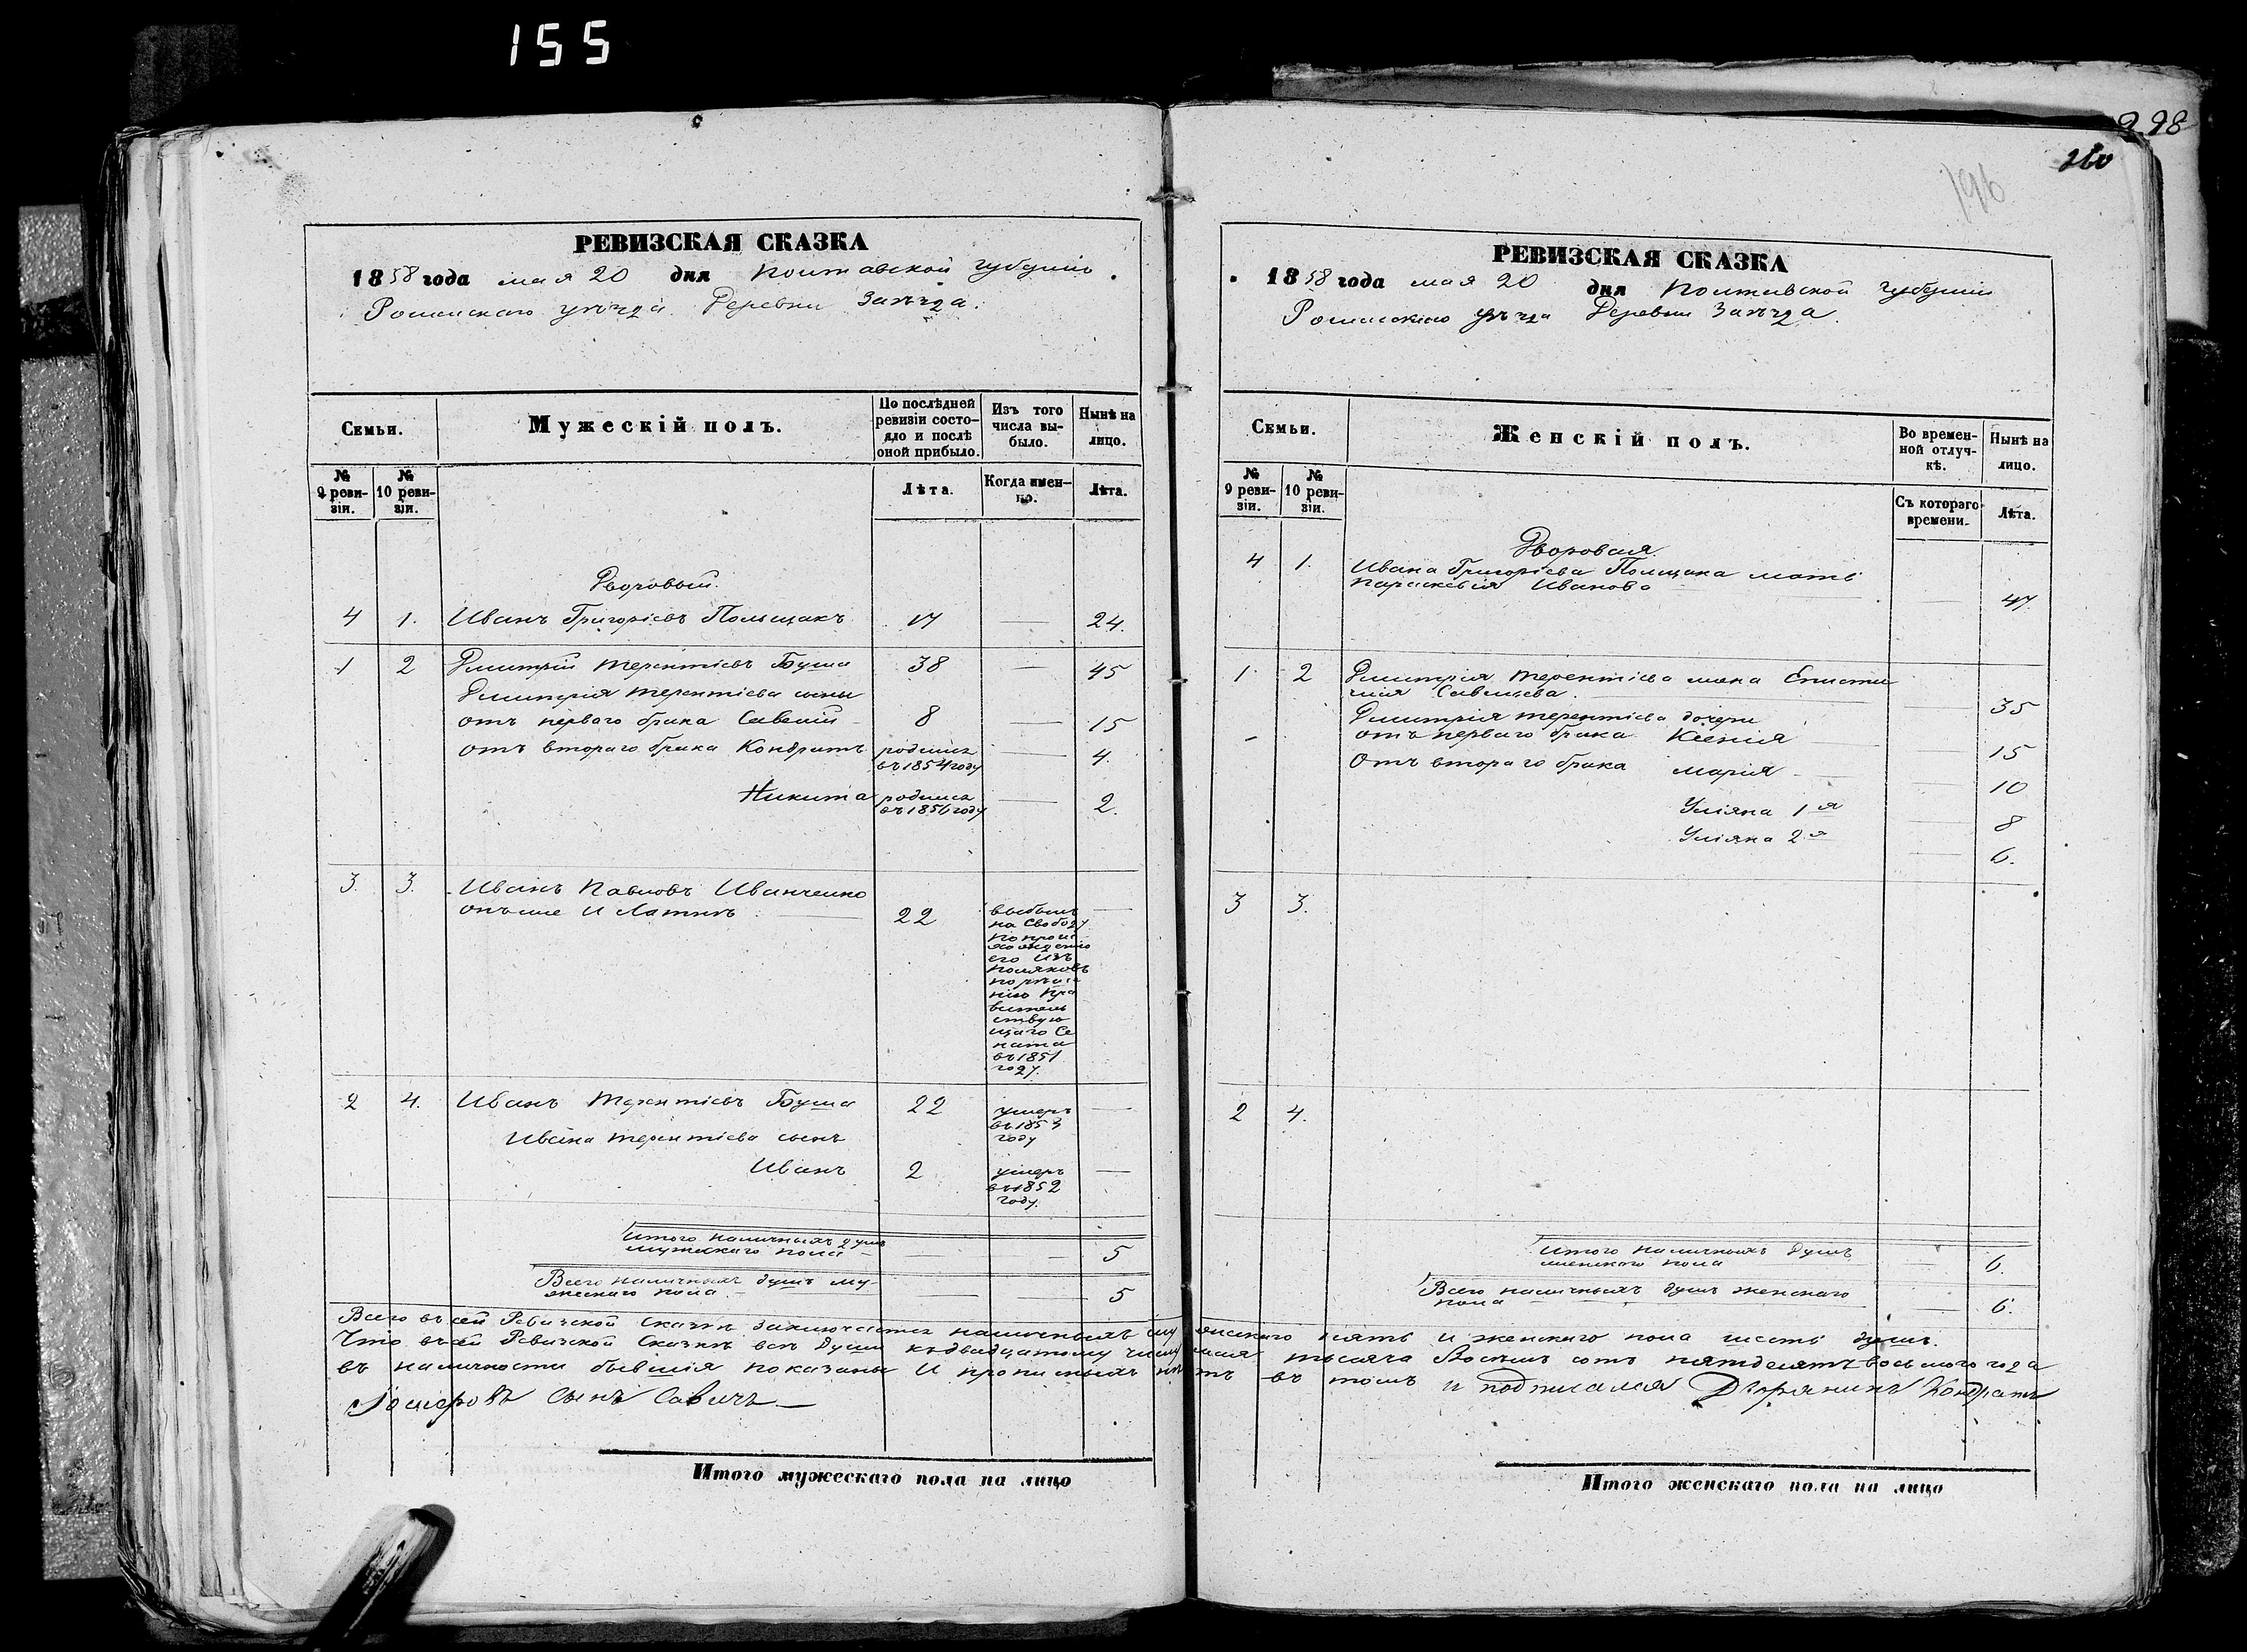 155
РЕВИЗСКАЯ СКАЗКА
1858 года мая 20 дня Полтавской губернiи
Роменскаго уѣзда Деревни Заѣзда.
Семьи.
Мужескiй полъ.
По послѣдней ревизiи состояло и послѣ оной прибыло.
Изъ того числа выбыло.
Нынѣ на лицо.
№ 9 ревизiи.
№ 10 ревизiи.
Лѣта.
Когда именно.
Лѣта.
Дворовый.
4 1. Иванъ Григорiевъ Польщакъ 17 — 24.
1 2 Дмитрiй Терентiевъ Буша 38 — 45
Дмитрiя Терентiева сыны
отъ перваго брака Савелiй 8 — 15
отъ втораго брака Кондратъ родился въ 1854 году — 4.
Никита родился въ 1856 году — 2.
3. 3. Иванъ Павловъ Иванченко
онъ же и 22 —
выбылъ
на свободу
по проис
хожденiю
его изъ
поляковъ
по рѣше
нiю Пра
витель
ствую
щаго Се
ната
въ 1851
году.
2 4. Иванъ Терентiевъ Буша 22 умеръ въ 1853 году —
Ивана Терентiева сынъ
Иванъ 2 умеръ въ 1852 году. —
Итого наличныхъ душъ
мужескаго пола — — — 5
Всего наличныхъ душъ му-
жескаго пола — — — 5
298
260
196
РЕВИЗСКАЯ СКАЗКА
1858 года мая 20 дня Полтавской губернiи
Роменскаго уѣзда Деревни Заѣзда.
Семьи.
Женскiй полъ.
Во временной отлучкѣ.
Нынѣ на лицо.
№ 9 ревизiи.
№ 10 ревизiи.
Съ котораго времени.
Лѣта.
Дворовая.
4 1. Ивана Григорiева Польщака мать
Параскевiя Иванова — 47.
1. 2 Дмитрiя Терентiева жена Еписти
мiя Савельева. — 35
Дмитрiя Терентiева дочери
отъ перваго брака Ксенiя — 15
Отъ втораго брака Марiя — 10
Улiяна 1я — 8
Улiяна 2я — 6.
3 3.
2 4.
Итого наличныхъ душъ
женскаго пола — 6.
Всего наличныхъ душъ женскаго
пола — 6.
Всего въ сей Ревизской Сказкѣ заключается наличныхъ мужескаго пять и женскаго пола шесть душъ.
Что въ сей Ревизской Сказкѣ всѣ Души къ двадцатому числу мая тысяча восемь сотъ пятдесятъ восьмого года
въ наличности бывшiя показаны и прописныхъ нѣтъ въ томъ и подписался Дворянинъ Кондратъ
сынъ Савичъ —
Итого мужескаго пола на лицо
Итого женскаго пола на лицо